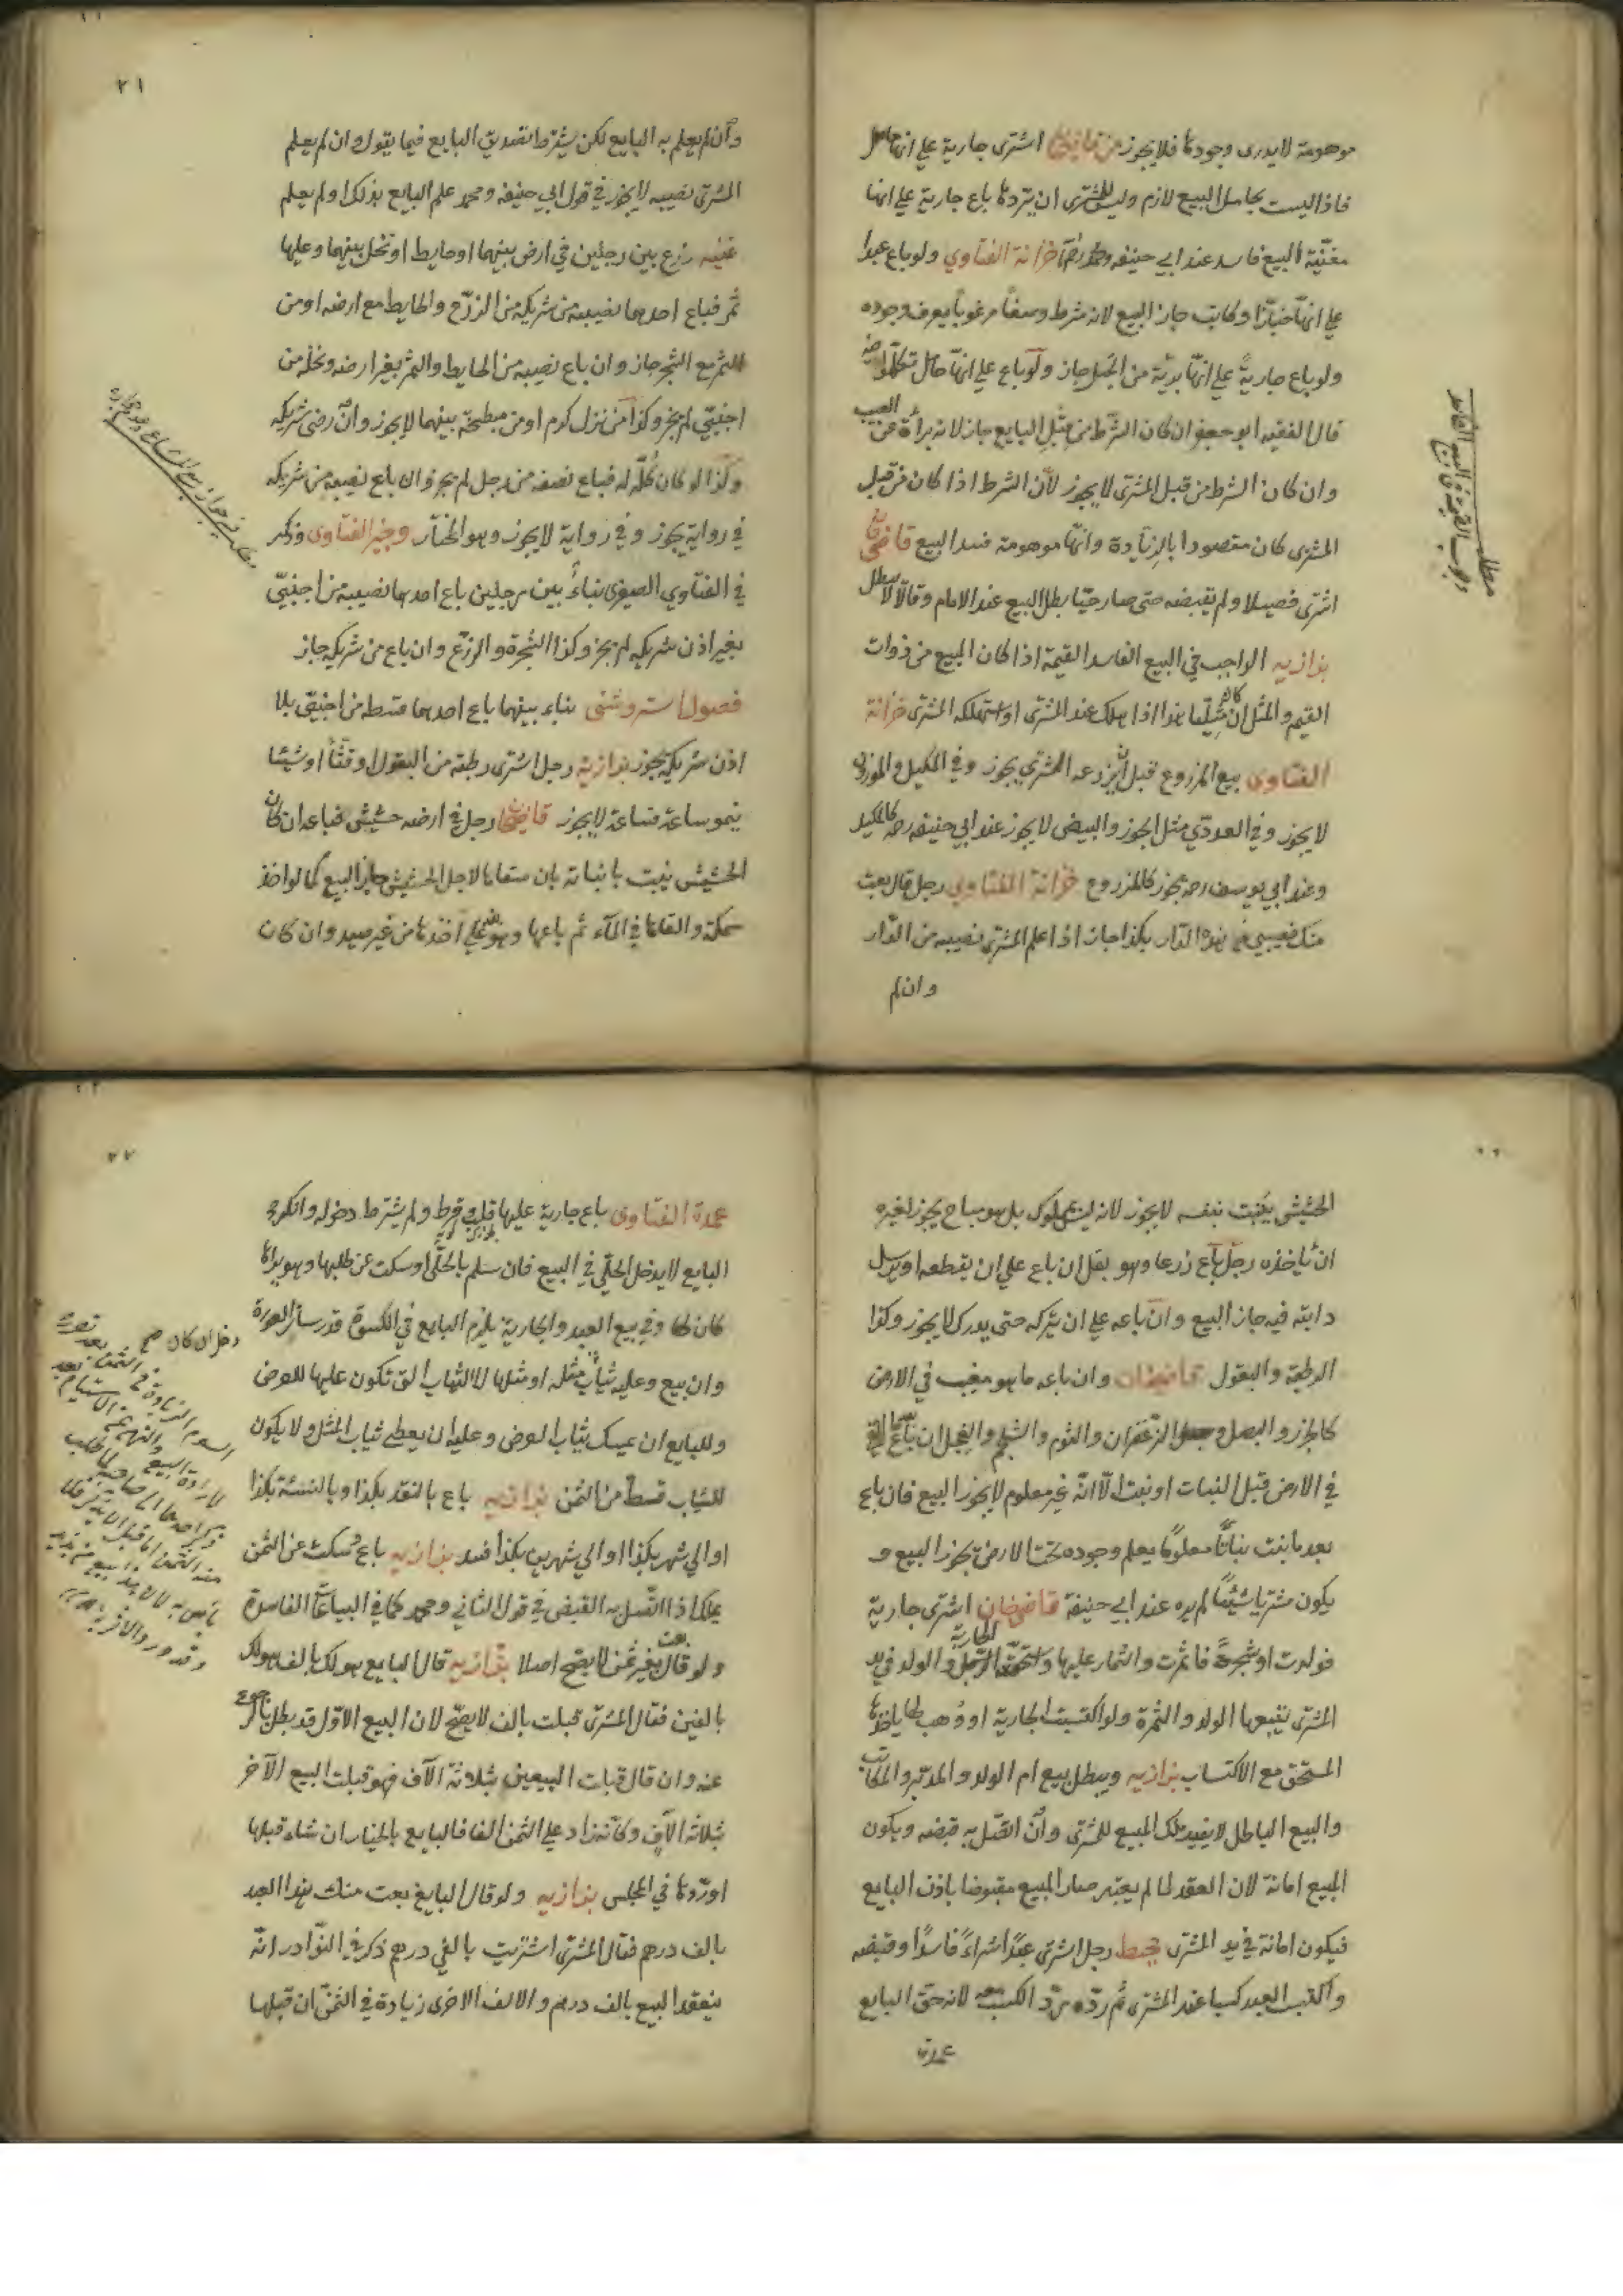 موهومة لا يدرى وجودها فلا يجوز من قاضيخان اشترى جارية على انها حامل
فاذا ليست بحامل البيع لازم وليس للمشترى ان يردها باع جارية على انها
مغنّية البيع فاسد عند ابي حنيفه ومحمد خزانة الفتاوى ولو باع عبدا
على انه خبّازا وكاتب جاز البيع لانه شرط وصفا مرغوبا يعرف وجوده
ولو باع جارية على انها بريّة من الحبل جاز ولو باع على انها حامل تكلّموا فيه
قال الفقيه ابو جعفر ان كان الشرط من قبل البايع جاز لانه براة عن العيب
وان كان الشرط من قبل المشترى لا يجوز لأنّ الشرط اذا كان من قبل
المشترى كان مقصودا بالزيادة وانها موهومة فسد البيع قاضيخان
اشترى فصيلا ولم يقبضه حتى صار حبّا بطل البيع عند الامام وقالا لا يبطل
بزازيه الواجب في البيع الفاسد القيمة اذا كان المبيع من ذوات
القيم والمثل ان كان مثليّا هذا اذا هلك عند المشترى او استهلكه المشترى خزانة
الفتاوى بيع المزروع قبل ان يزرعه المشترى يجوز وفي المكيل والموزون
لا يجوز وفي العددي مثل الجوز والبيض لا يجوز عند ابي حنيفه رحه كالمكيل
وعند ابي يوسف رحه يجوز كالمزروع خزانة الفتاوى رجل قال بعت
منك نصيبي من هذه الدّار بكذا جاز اذا علم المشترى نصيبه من الدّار
وان لم
مطلب
الواجب القيمة في البيع الفاسد
٢١
وان لم يعلم به البايع لكن يشترط تصديق البايع فيما يقول وان لم يعلم
المشترى نصيبه لا يجوز في قول ابي حنيفه ومحمد علم البايع بذلك او لم يعلم
غنيه زرع بين رجلين في ارض بينهما او حايط او نخل بينهما وعليها
ثمر فباع احدهما نصيبه من شريكه من الزرع والحايط مع ارضه او من
الثمر مع الشجر جاز وان باع نصيبه من الحايط والثمر بغير ارضه ونخله من
اجنبيّ لم يجز وكذا من نزل كرم او من مبطخة بينهما لا يجوز وان رضى شريكه
وكذا لو كان كلّه له فباع نصفه من رجل لم يجز وان باع نصيبه من شريكه
في رواية يجوز وفي رواية لا يجوز وهو المختار وجيز الفتاوى وذكر
في الفتاوي الصغرى بناء بين رجلين باع احدهما نصيبه من اجنبيّ
بغير اذن شريكه لم يجز وكذا الشجرة والزرع وان باع من شريكه جاز
فصول استروشنى بناء بينهما باع احدهما قسطه من اجنبيّ بلا
اذن شريكه يجوز بزازيه رجل اشترى رطبة من البقول او قثّا او شيئا
ينمو ساعة فساعة لا يجوز قاضيخان رجل في ارضه حشيش فباعه ان كان
الحشيش نبت بانباته بان سقاها لاجل الحشيش جاز البيع كما لو اخذ
سمكة والقاها في الماء ثم باعها وهو يقدر على اخذها من غير صيد وان كان
الحشيش ينبت بنفسه لا يجوز لانه ليس بمملوك بل هو مباح يجوز لغيره
ان ياخذه رجل باع زرعا وهو بقل ان باع على ان يقطعه او يرسل
دابته فيه جاز البيع وان باعه على ان يتركه حتى يدرك لا يجوز وكذا
الرطبة والبقول قاضيخان وان باع ما هو مغيب في الارض
كالجزر والبصل و الزعفران والثوم والشلجم والفجل ان باع
في الارض قبل النبات او نبت الّا انه غير معلوم لا يجوز البيع فان باع
بعد ما نبت نباتا معلوما يعلم وجوده تحت الارض يجوز البيع و
يكون مشتريا شيئا لم يره عند ابي حنيفة قاضيخان اشترى جارية
فولدت او شجرة فاثمرت والثمار عليها واستحقّت الجارية والولد في يد
المشترى يتبعها الولد والثمرة ولو اكتسبت الجارية او وهب لها ياخذها
المستحق مع الاكتساب بزازيه ويبطل بيع ام الولد والمدبّر والمكاتب
والبيع الباطل لا يفيد ملك المبيع للمشترى وان اتّصل به قبضه ويكون
المبيع امانة لان العقد لما لم يعتبر صار المبيع مقبوضا باذن البايع
فيكون امانة في يد المشترى محيط رجل اشترى عبدا شراءً فاسدا وقبضه
واكتسب العبد كسبا عند المشترى ثم ردّه يردّ الكسب معه لانه حق البايع
عمدة
٢٢
عمدة الفتاوى باع جارية عليها قلب وقرط ولم يشترط دخوله وانكره
البايع لا يدخل الحلي في البيع فان سلم بالحلي او سكت عن طلبها وهو يراها
كان لها وفي بيع العبد والجارية يلزم البايع في الكسوة قدر ساتر العورة
وان بيع وعليه ثياب مثله او مثلها لا الثياب التي تكون عليها للعرض
وللبايع ان يمسك ثياب العرض وعليه ان يعطى ثياب المثل ولا يكون
للثياب قسط من الثمن بزازيه باع بالنقد بكذا وبالنسئة بكذا
او الى شهر بكذا او الى شهرين بكذا فسد بزازيه باع وسكت عن الثمن
يملك اذا اتّصل به القبض في قول الثاني ومحمد كما في البياعات الفاسدة
ولو قال بعت بغير ثمن لا يصح اصلا بزازيه قال البايع هو لك بالف هو لك
بالفين فقال المشترى قبلت بالف لا يصحّ لان البيع الاوّل قد بطل بالرجوع
عنه وان قال قبلت البيعين بثلاثة الآف فهو قبلت البيع الآخر
بثلاثه الآف وكانه زاد على الثمن الفا فالبايع بالخيار ان شاء قبلها
او ردّها في المجلس بزازيه ولو قال البايع بعت منك هذا العبد
بالف درهم فقال المشترى اشتريت بالفي درهم ذكر في النّوادر انّه
ينعقد البيع بالف درهم والالف الاخرى زيادة في الثمن ان قبلها